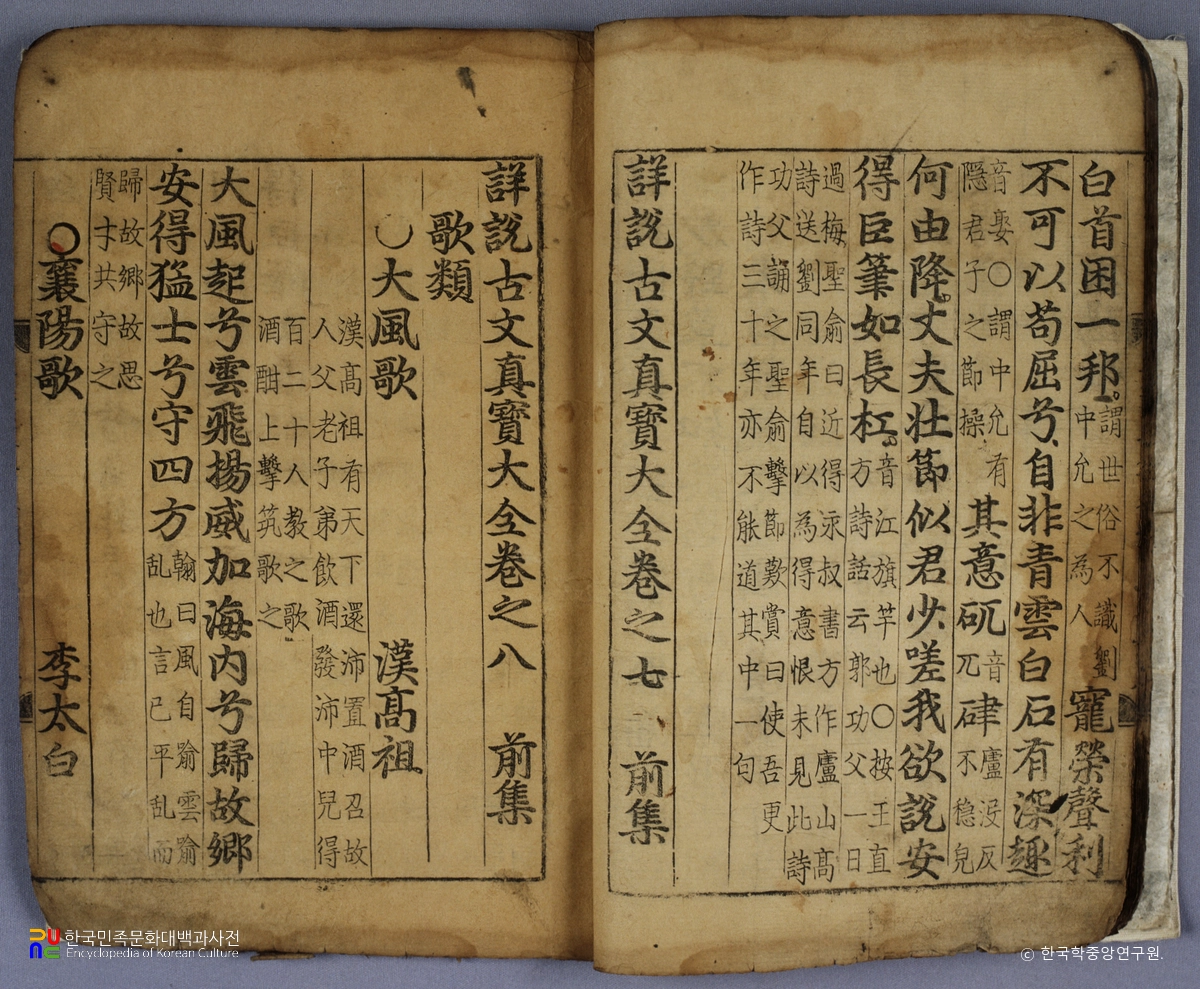 白首困一邦謂世俗不識劉中允之為人寵榮聲利
不可以苟屈兮自非青雲白石有深趣
音娄○謂中允有隱君子之節操其意矹音兀硉盧没反不穏皃
何由降丈夫壯節似君少嗟我欲說安
得巨筆如長杠音江旗竿也○按王直方詩話云郭功父一日
過梅聖俞曰近得永叔書方作廬山高
詩送劉同年自以為得意恨未見此詩
功父誦之聖俞擊節歎賞曰使吾更
作詩三十年亦不能道其中一句
詳說古文真寶大全卷之七 前集
詳說古文真寶大全卷之八 前集
歌類
○大風歌 漢高祖
漢高祖有天下還沛置酒召故
人父老子弟飲酒發沛中兒得
百二十人教之歌
酒酣上擊筑歌之
大風起兮雲飛揚威加海内兮歸故鄉
安得猛士兮守四方翰曰風自喻雲喻乱也言已平乱而
歸故鄉故思
賢才共守之
○襄陽歌 李太白
한국민족문화대백과사전
Encyclopedia of Korean Culture
© 한국학중앙연구원.